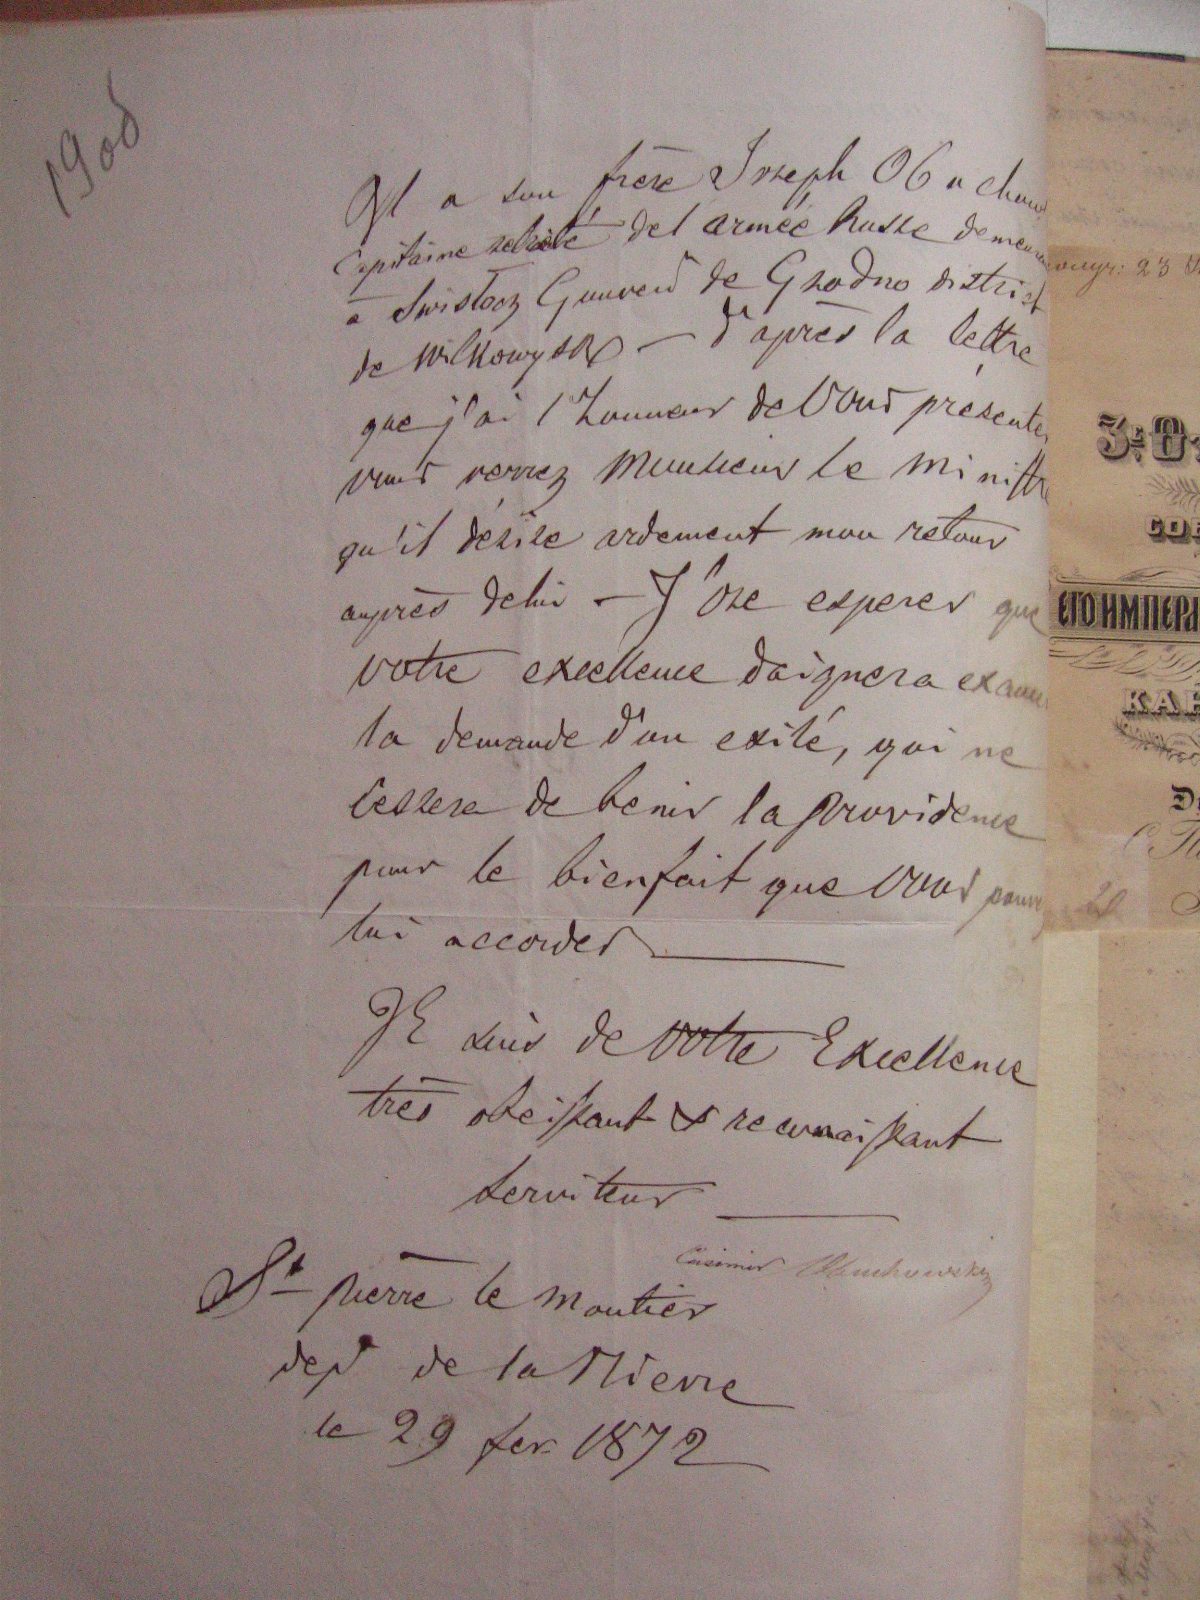 19 об
Il a son frère Joseph Obuchow
Capitaine retraité del armée Russe demeuran
a Swislocz Gouvert de Grodno district
de Wilkowysk — d'après la lettre
que j'ai l'honneur de Vous présenter
vous verrez Monsieur le Ministre
qu'il désire ardement mon retour
auprès delui — J'Ose esperer que
votre excellence daignera exam
la demande d'un exilé, qui ne
cessera de benir la providence
pour le bienfait que Vous pouvez
lui accorder
JE suis de votre Excellence
très obeissant & reconnaissant
serviteur
Casimir
St pierre le moutier
dept de la Nievre
le 29 fev 1872
ougr: 23
З-е О
СОБ
ЕГО ИМПЕРА
КАН